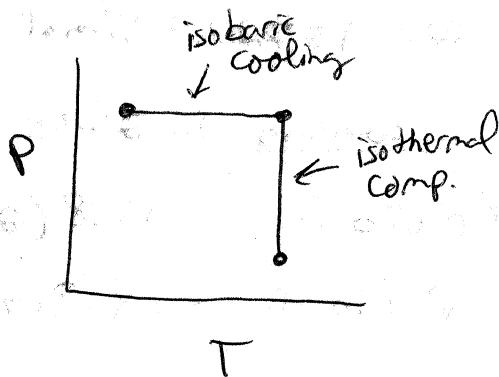 isobaric
cooling
P
isothermal
comp.
T